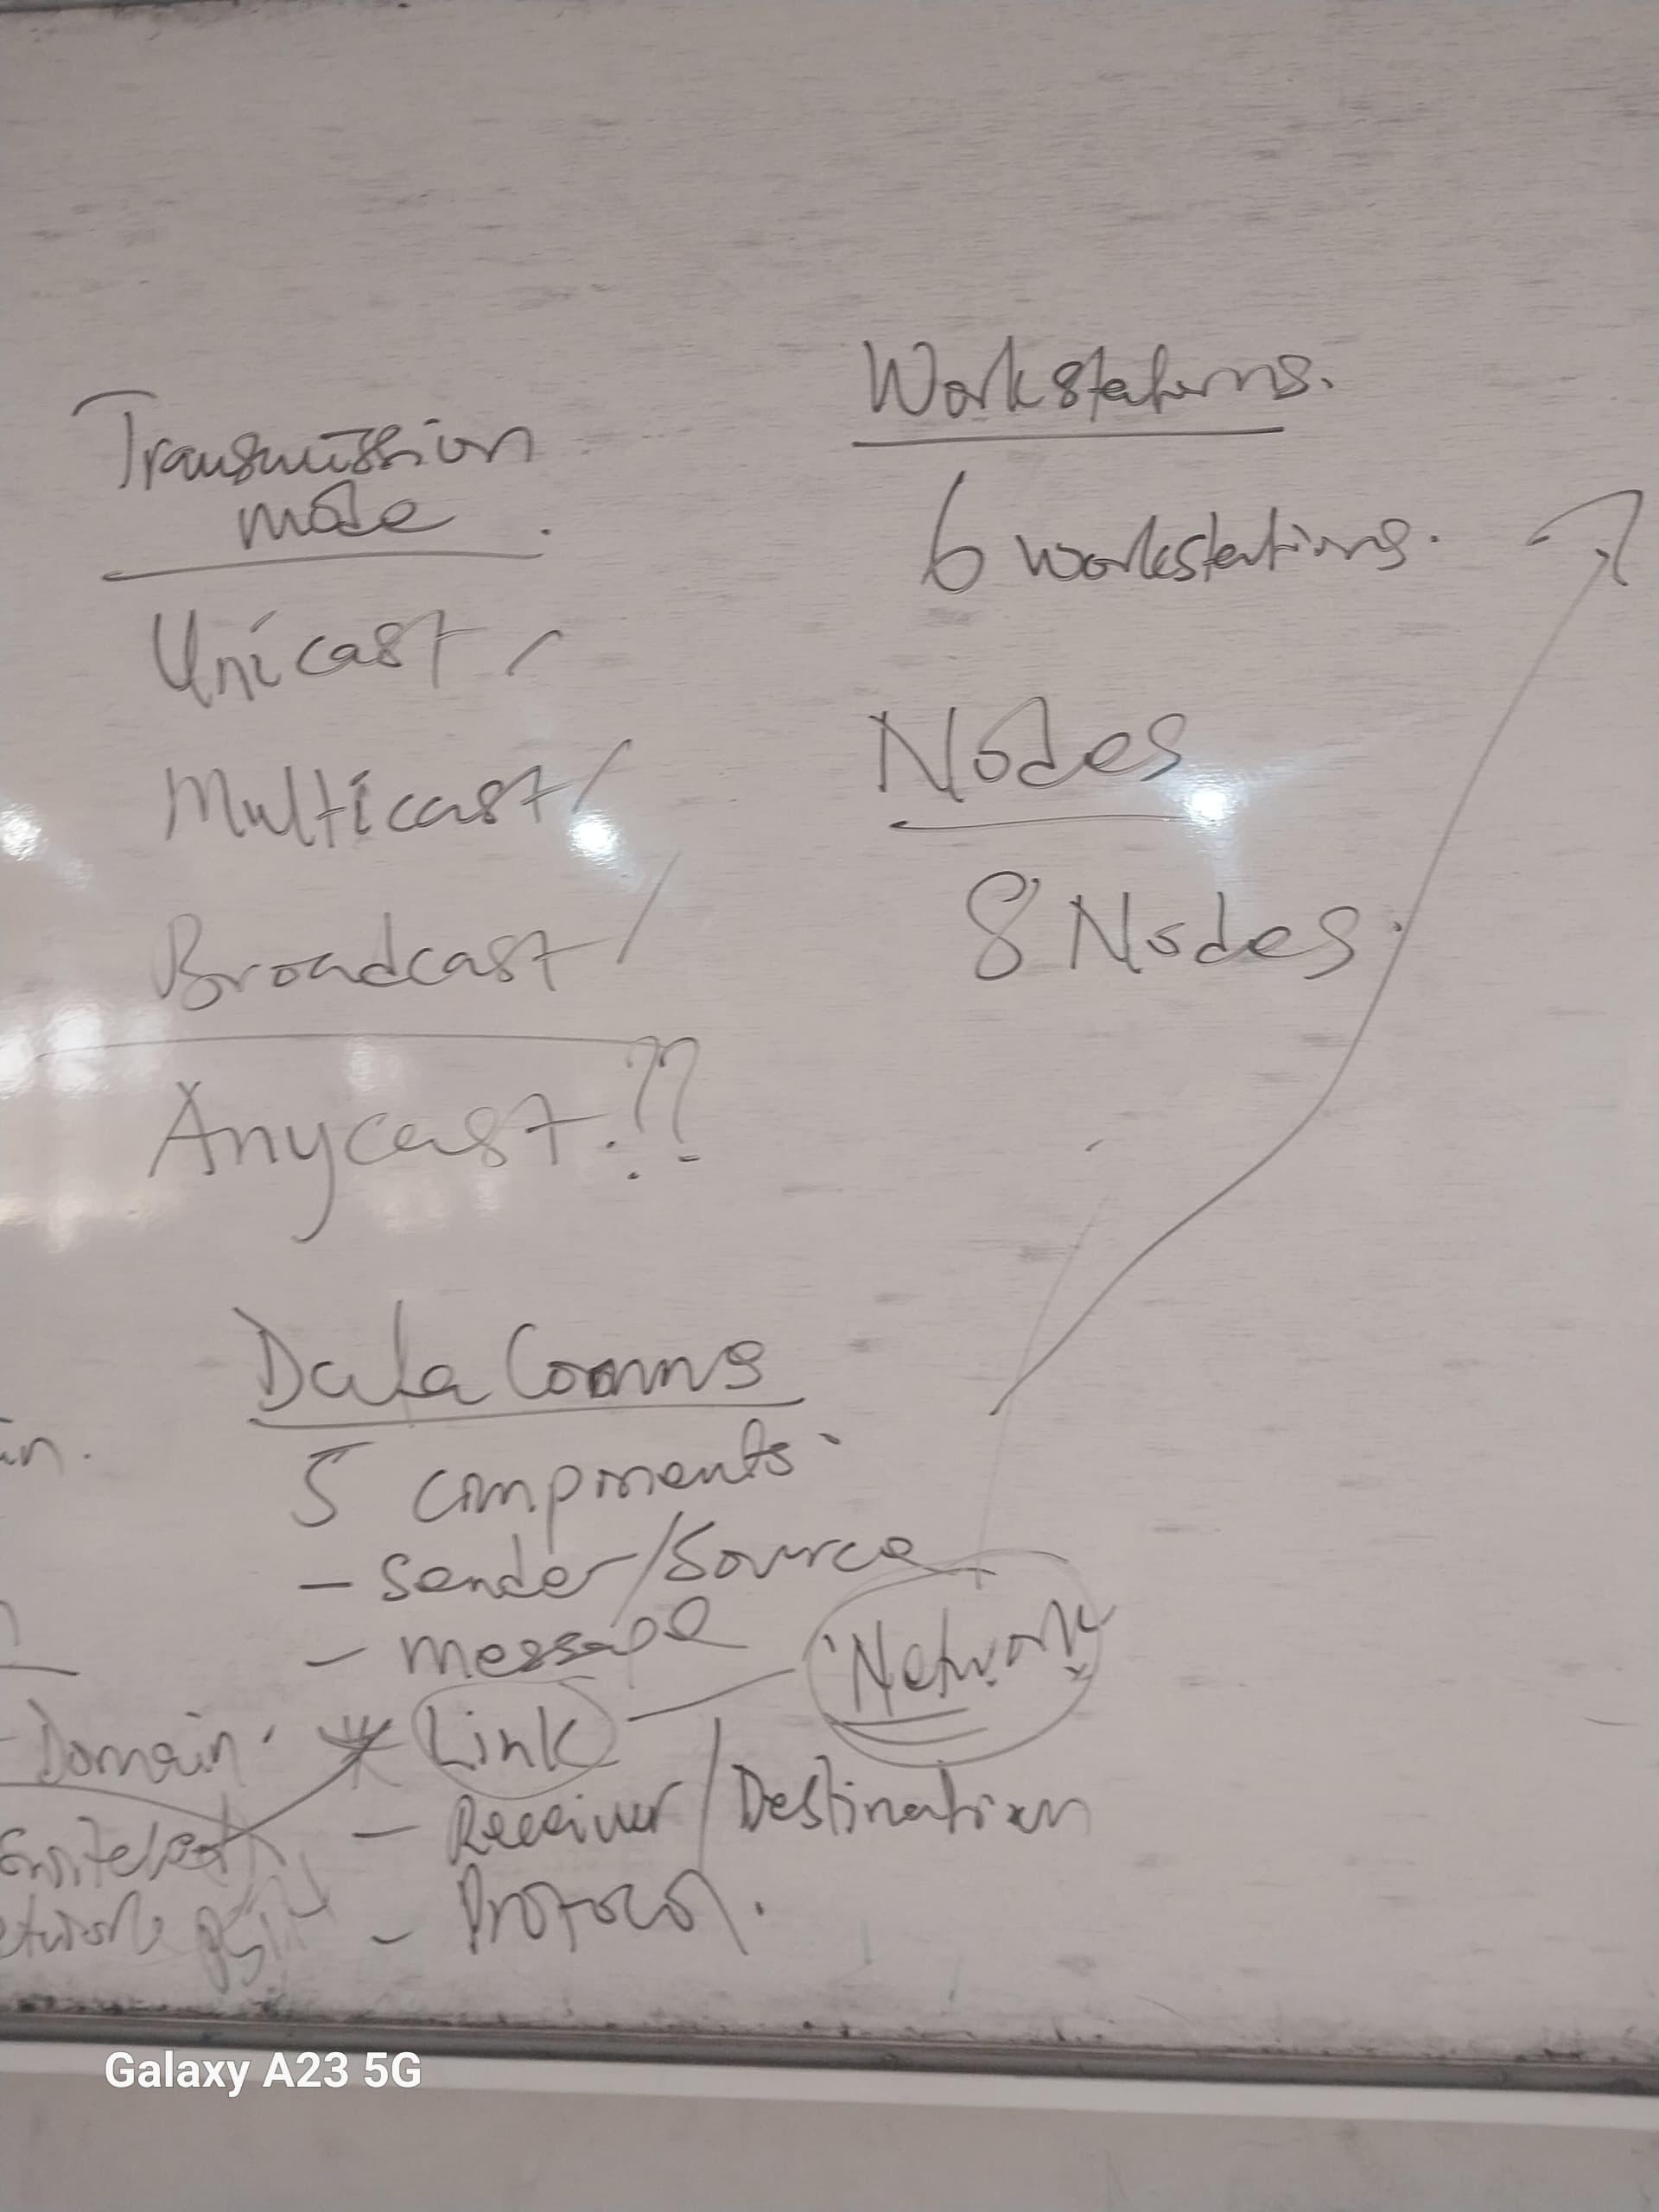 Transmission
mode.
Unicast
Multicast
Broadcast
Anycast.??
Workstations.
6 workstations.
Nodes
8 Nodes.
Data Comms
5 components
- Sender/Source
- message
Link - Network
- Receiver/Destination
- Protocol.
- Domain.
Galaxy A23 5G